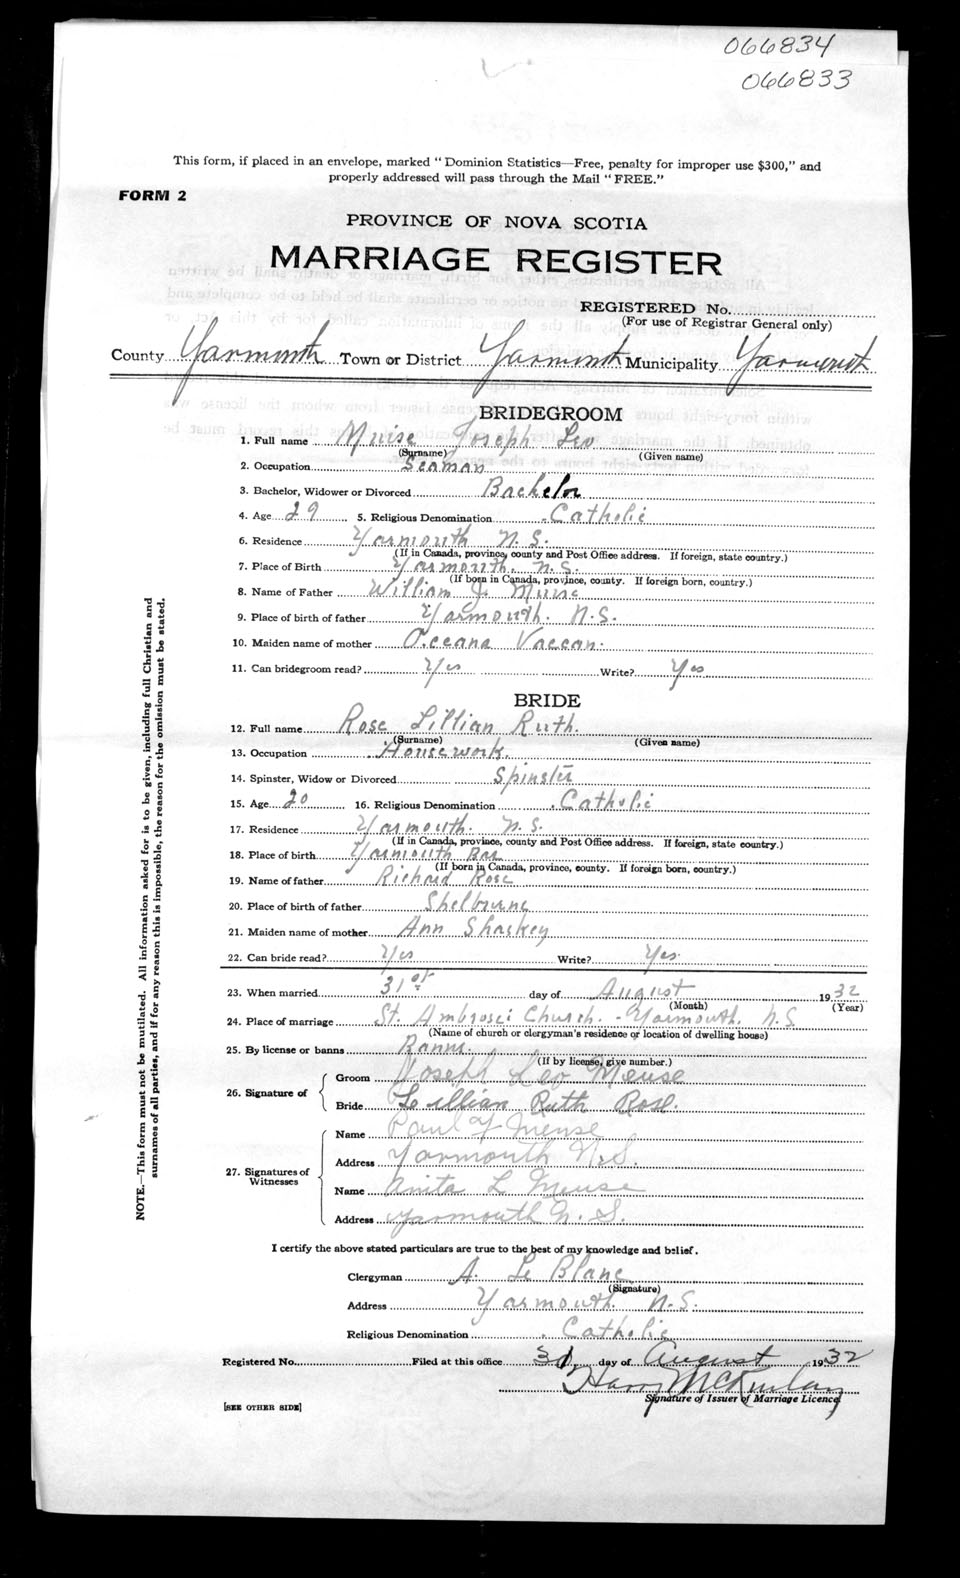 066834
066833
This form, if placed in an envelope, marked “ Dominion Statistics—Free, penalty for improper use $300,” and
properly addressed will pass through the Mail “ FREE.”
FORM 2
PROVINCE OF NOVA SCOTIA
MARRIAGE REGISTER
REGISTERED No.
(For use of Registrar General only)
County Yarmouth Town or District Yarmouth Municipality Yarmouth
BRIDEGROOM
1. Full name Muise Joseph Leo
(Surname) (Given name)
2. Occupation Seaman
3. Bachelor, Widower or Divorced Bachelor
4. Age 29 5. Religious Denomination Catholic
6. Residence Yarmouth N.S.
(If in Canada, province, county and Post Office address. If foreign, state country.)
7. Place of Birth Yarmouth. N.S.
(If born in Canada, province, county. If foreign born, country.)
8. Name of Father William J. Muise
9. Place of birth of father Yarmouth. N.S.
10. Maiden name of mother Oceana Vaccan.
11. Can bridegroom read? Yes Write? Yes
BRIDE
12. Full name Rose Lillian Ruth.
(Surname) (Given name)
13. Occupation Housework.
14. Spinster, Widow or Divorced Spinster
15. Age 20 16. Religious Denomination Catholic
17. Residence Yarmouth. N.S.
(If in Canada, province, county and Post Office address. If foreign, state country.)
18. Place of birth Yarmouth Bar
(If born in Canada, province, county. If foreign born, country.)
19. Name of father Richard Rose
20. Place of birth of father Shelburne
21. Maiden name of mother Ann Sharkey
22. Can bride read? Yes Write? Yes.
23. When married 31st day of August 1932
(Month) (Year)
24. Place of marriage St. Ambrose Church. - Yarmouth, N.S.
(Name of church or clergyman's residence or location of dwelling house)
25. By license or banns Banns.
(If by license, give number.)
26. Signature of
Groom Joseph Leo Meuse
Bride Lillian Ruth Rose.
27. Signatures of Witnesses
Name Paul J Meuse
Address Yarmouth N.S.
Name Anita L Meuse
Address Yarmouth N. S.
I certify the above stated particulars are true to the best of my knowledge and belief.
Clergyman A. Le Blanc
(Signature)
Address Yarmouth. N.S.
Religious Denomination Catholic
Registered No. Filed at this office 31 day of August 1932
Harry McKinlay
Signature of Issuer of Marriage Licence
[SEE OTHER SIDE]
NOTE.—This form must not be mutilated. All information asked for is to be given, including full Christian and
surnames of all parties, and if for any reason this is impossible, the reason for the omission must be stated.